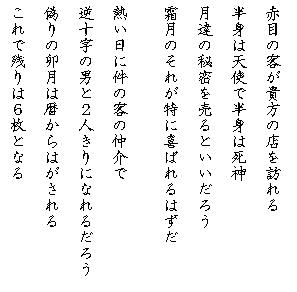 赤目の客が貴方の店を訪れる
半身は天使で半身は死神
月達の秘密を売るといいだろう
霜月のそれが特に喜ばれるはずだ
熱い日に件の客の仲介で
逆十字の男と2人きりになれるだろう
偽りの卯月は暦からはがされる
これで残りは6枚となる